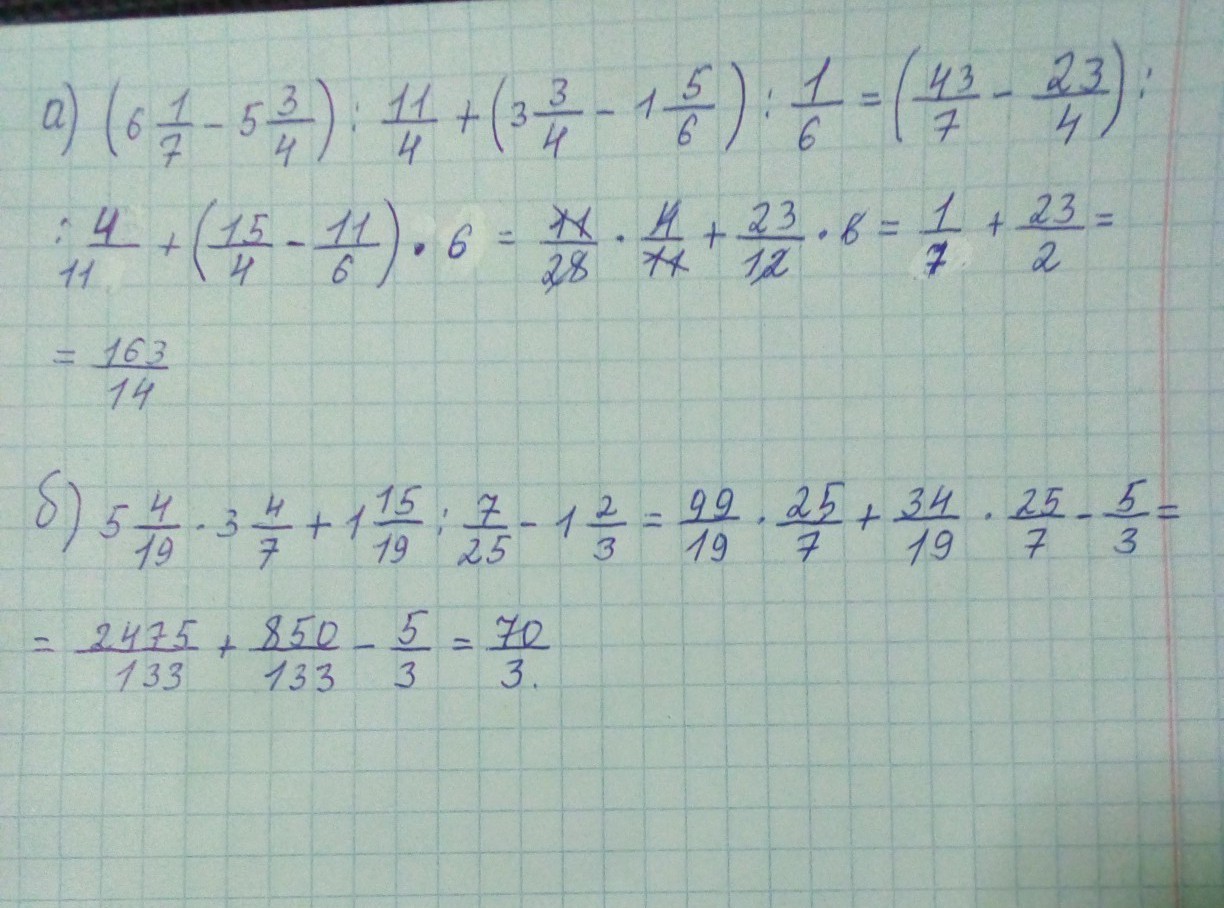 а) (6 1/7 - 5 3/4) : 11/4 + (3 3/4 - 1 5/6) : 1/6 = (43/7 - 23/4) :
: 4/11 + (15/4 - 11/6) · 6 = 11/28 · 4/11 + 23/12 · 6 = 1/7 + 23/2 =
= 163/14
б) 5 4/19 · 3 4/7 + 1 15/19 : 7/25 - 1 2/3 = 99/19 · 25/7 + 34/19 · 25/7 - 5/3 =
= 2475/133 + 850/133 - 5/3 = 70/3.